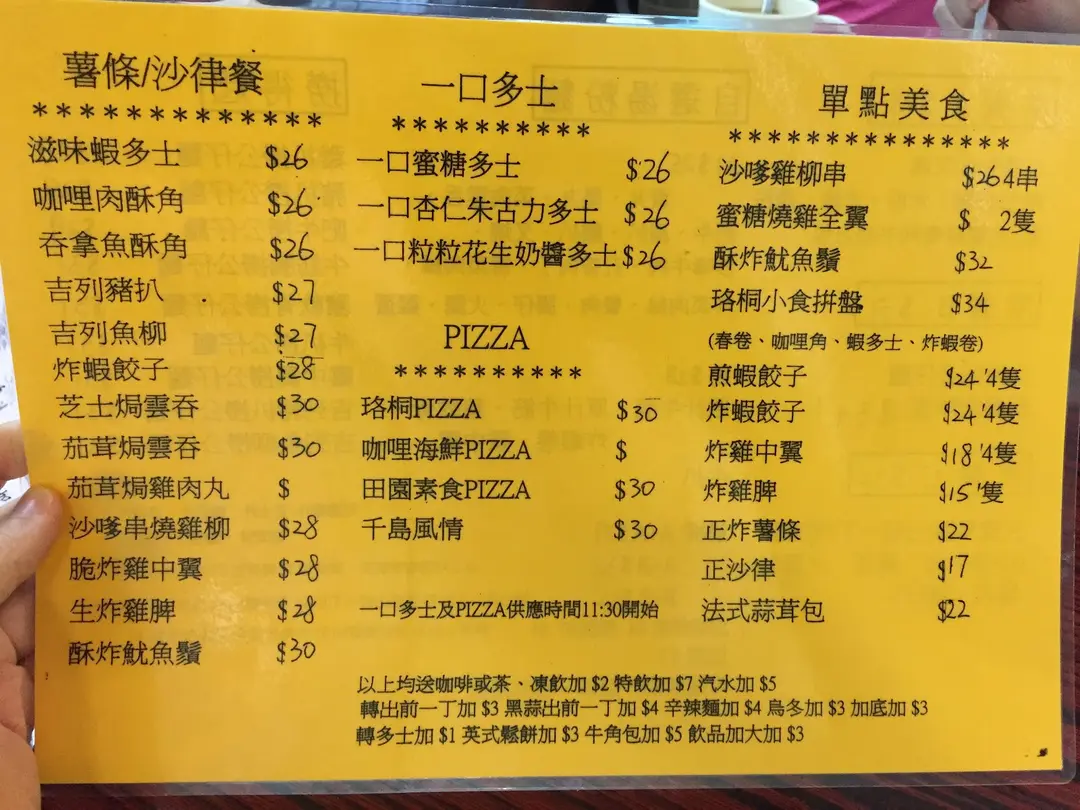 薯條/沙律餐
*************
滋味蝦多士 $26
咖哩肉酥角 $26
吞拿魚酥角 $26
吉列豬扒 $27
吉列魚柳 $27
炸蝦餃子 $28
芝士焗雲吞 $30
茄茸焗雲吞 $30
茄茸焗雞肉丸 $
沙嗲串燒雞柳 $28
脆炸雞中翼 $28
生炸雞脾 $28
酥炸魷魚鬚 $30
一口多士
**********
一口蜜糖多士 $26
一口杏仁朱古力多士 $26
一口粒粒花生奶醬多士 $26
PIZZA
**********
珞桐PIZZA $30
咖哩海鮮PIZZA $
田園素食PIZZA $30
千島風情 $30
一口多士及PIZZA供應時間11:30開始
單點美食
***************
沙嗲雞柳串 $26 4串
蜜糖燒雞全翼 $ 2隻
酥炸魷魚鬚 $32
珞桐小食拼盤 $34
(春卷、咖哩角、蝦多士、炸蝦卷)
煎蝦餃子 $24/4隻
炸蝦餃子 $24/4隻
炸雞中翼 $18/4隻
炸雞脾 $15/隻
正炸薯條 $22
正沙律 $17
法式蒜茸包 $22
以上均送咖啡或茶、凍飲加 $2 特飲加 $7 汽水加 $5
轉出前一丁加 $3 黑蒜出前一丁加 $4 辛辣麵加 $4 烏冬加 $3 加底加 $3
轉多士加 $1 英式鬆餅加 $3 牛角包加 $5 飲品加大加 $3